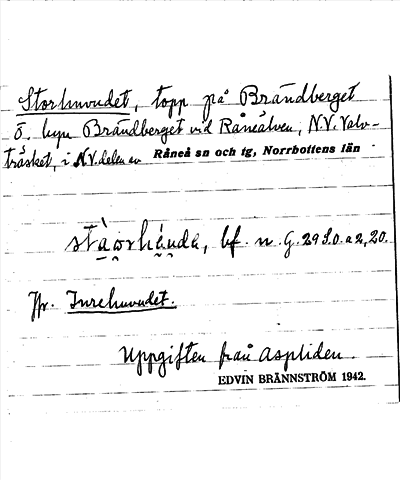 Storhuvudet, topp på Brändberget
ö. byn Brändberget vid Råneälven, N.V. Valv-
träsket, i N.V. delen av Råneå sn och tg, Norrbottens län
bf. n. G. 29 S.O. a 2, 20.
Jfr. Inrehuvudet.
Uppgiften från Aspliden.
EDVIN BRÄNNSTRÖM 1942.